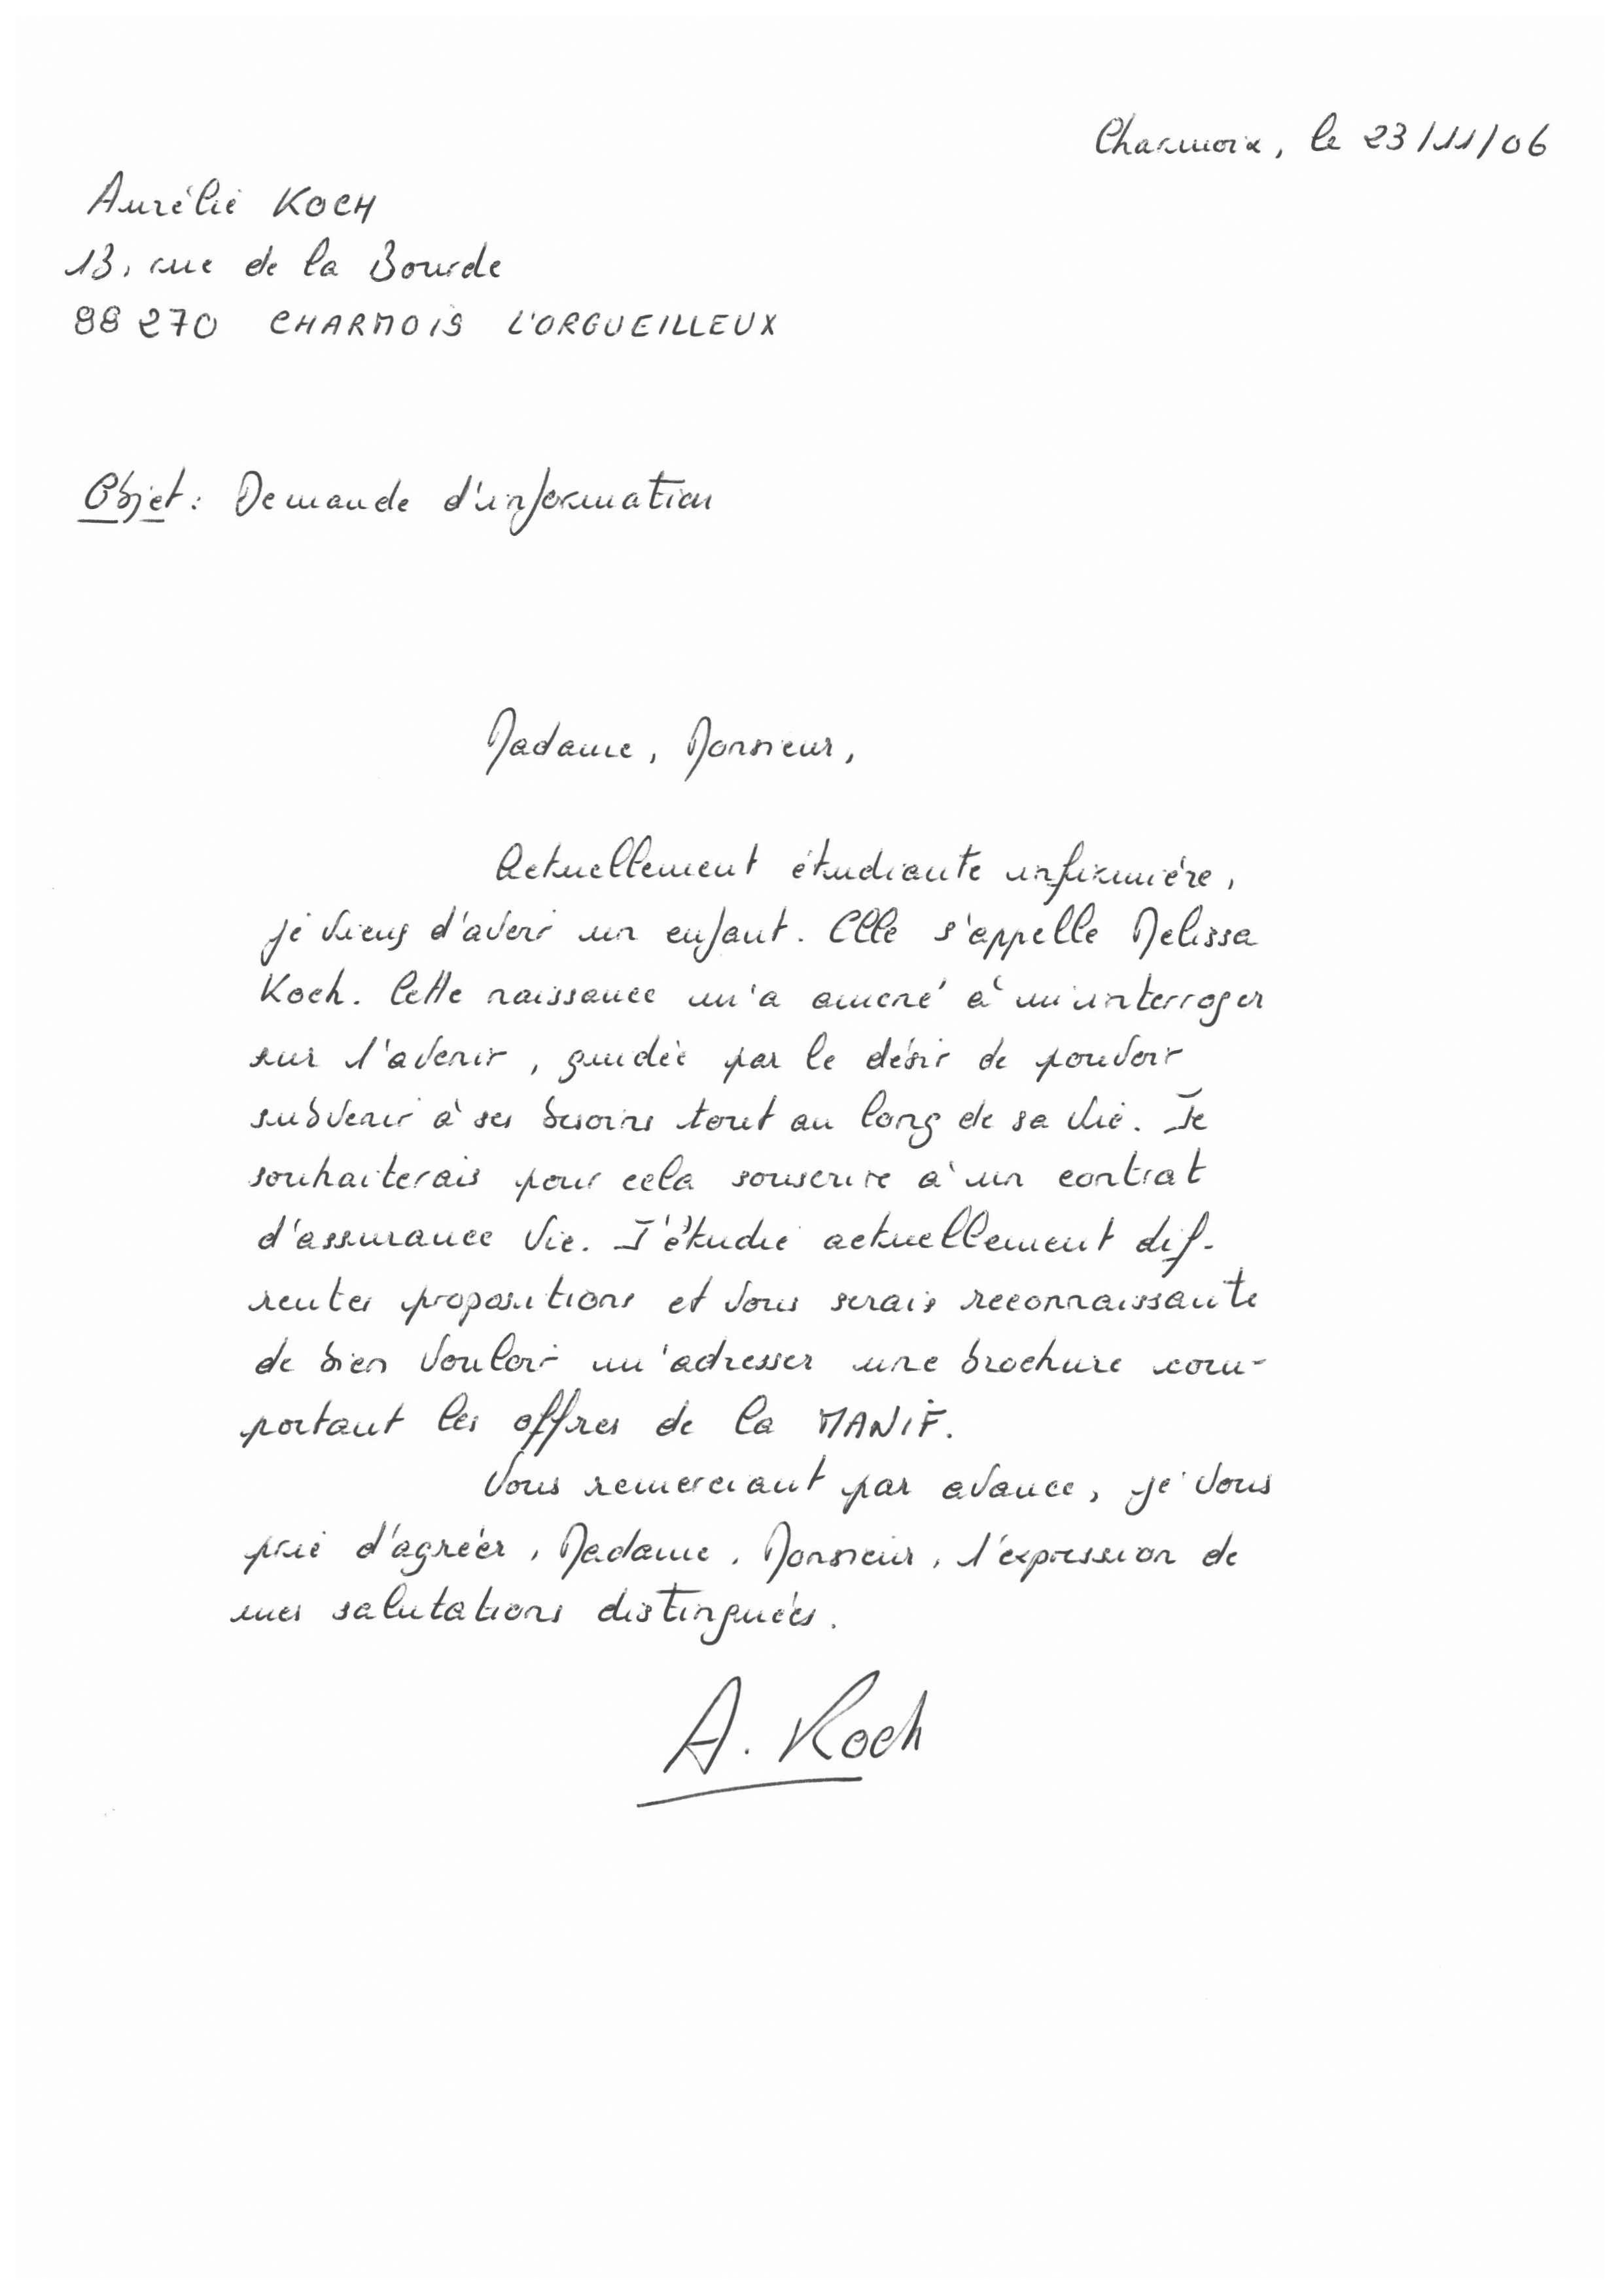 Charmoix, le 23/11/06
Aurélie KOCH
13, rue de la Bourde
88 270 CHARMOIS L'ORGUEILLEUX
Objet : Demande d'information
Madame, Monsieur,
Actuellement étudiante infirmière,
je viens d'avoir un enfant. Elle s'appelle Melissa
Koch. Cette naissance m'a amené à m'interroger
sur l'avenir, guidée par le désir de pouvoir
subvenir à ses besoins tout au long de sa vie. Je
souhaiterais pour cela souscrire à un contrat
d'assurance vie. J'étudie actuellement dif-
rentes propositions et vous serais reconnaissante
de bien vouloir m'adresser une brochure com-
portant les offres de la MANIF.
Vous remerciant par avance, je vous
prie d'agréer, Madame, Monsieur, l'expression de
mes salutations distinguées.
A. Koch